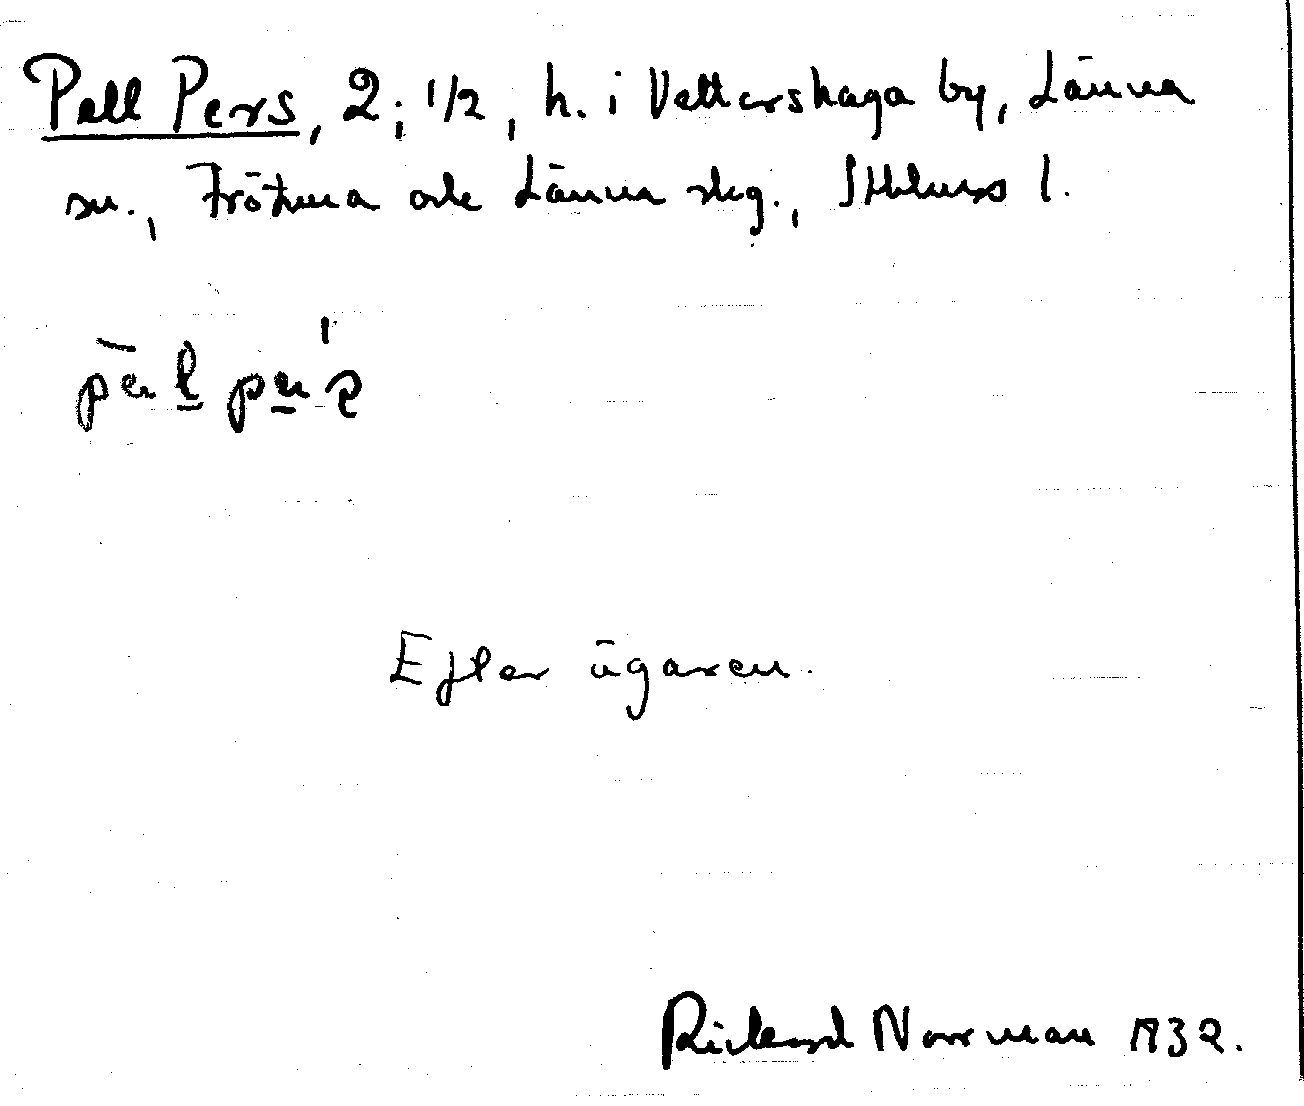 Pell Pers, 2; 1/2, h. i Vettershaga by, Länna
sn., Frötuna och Länna skg., Sthlms l.
Efter ägaren.
Rickard Norrman 1932.